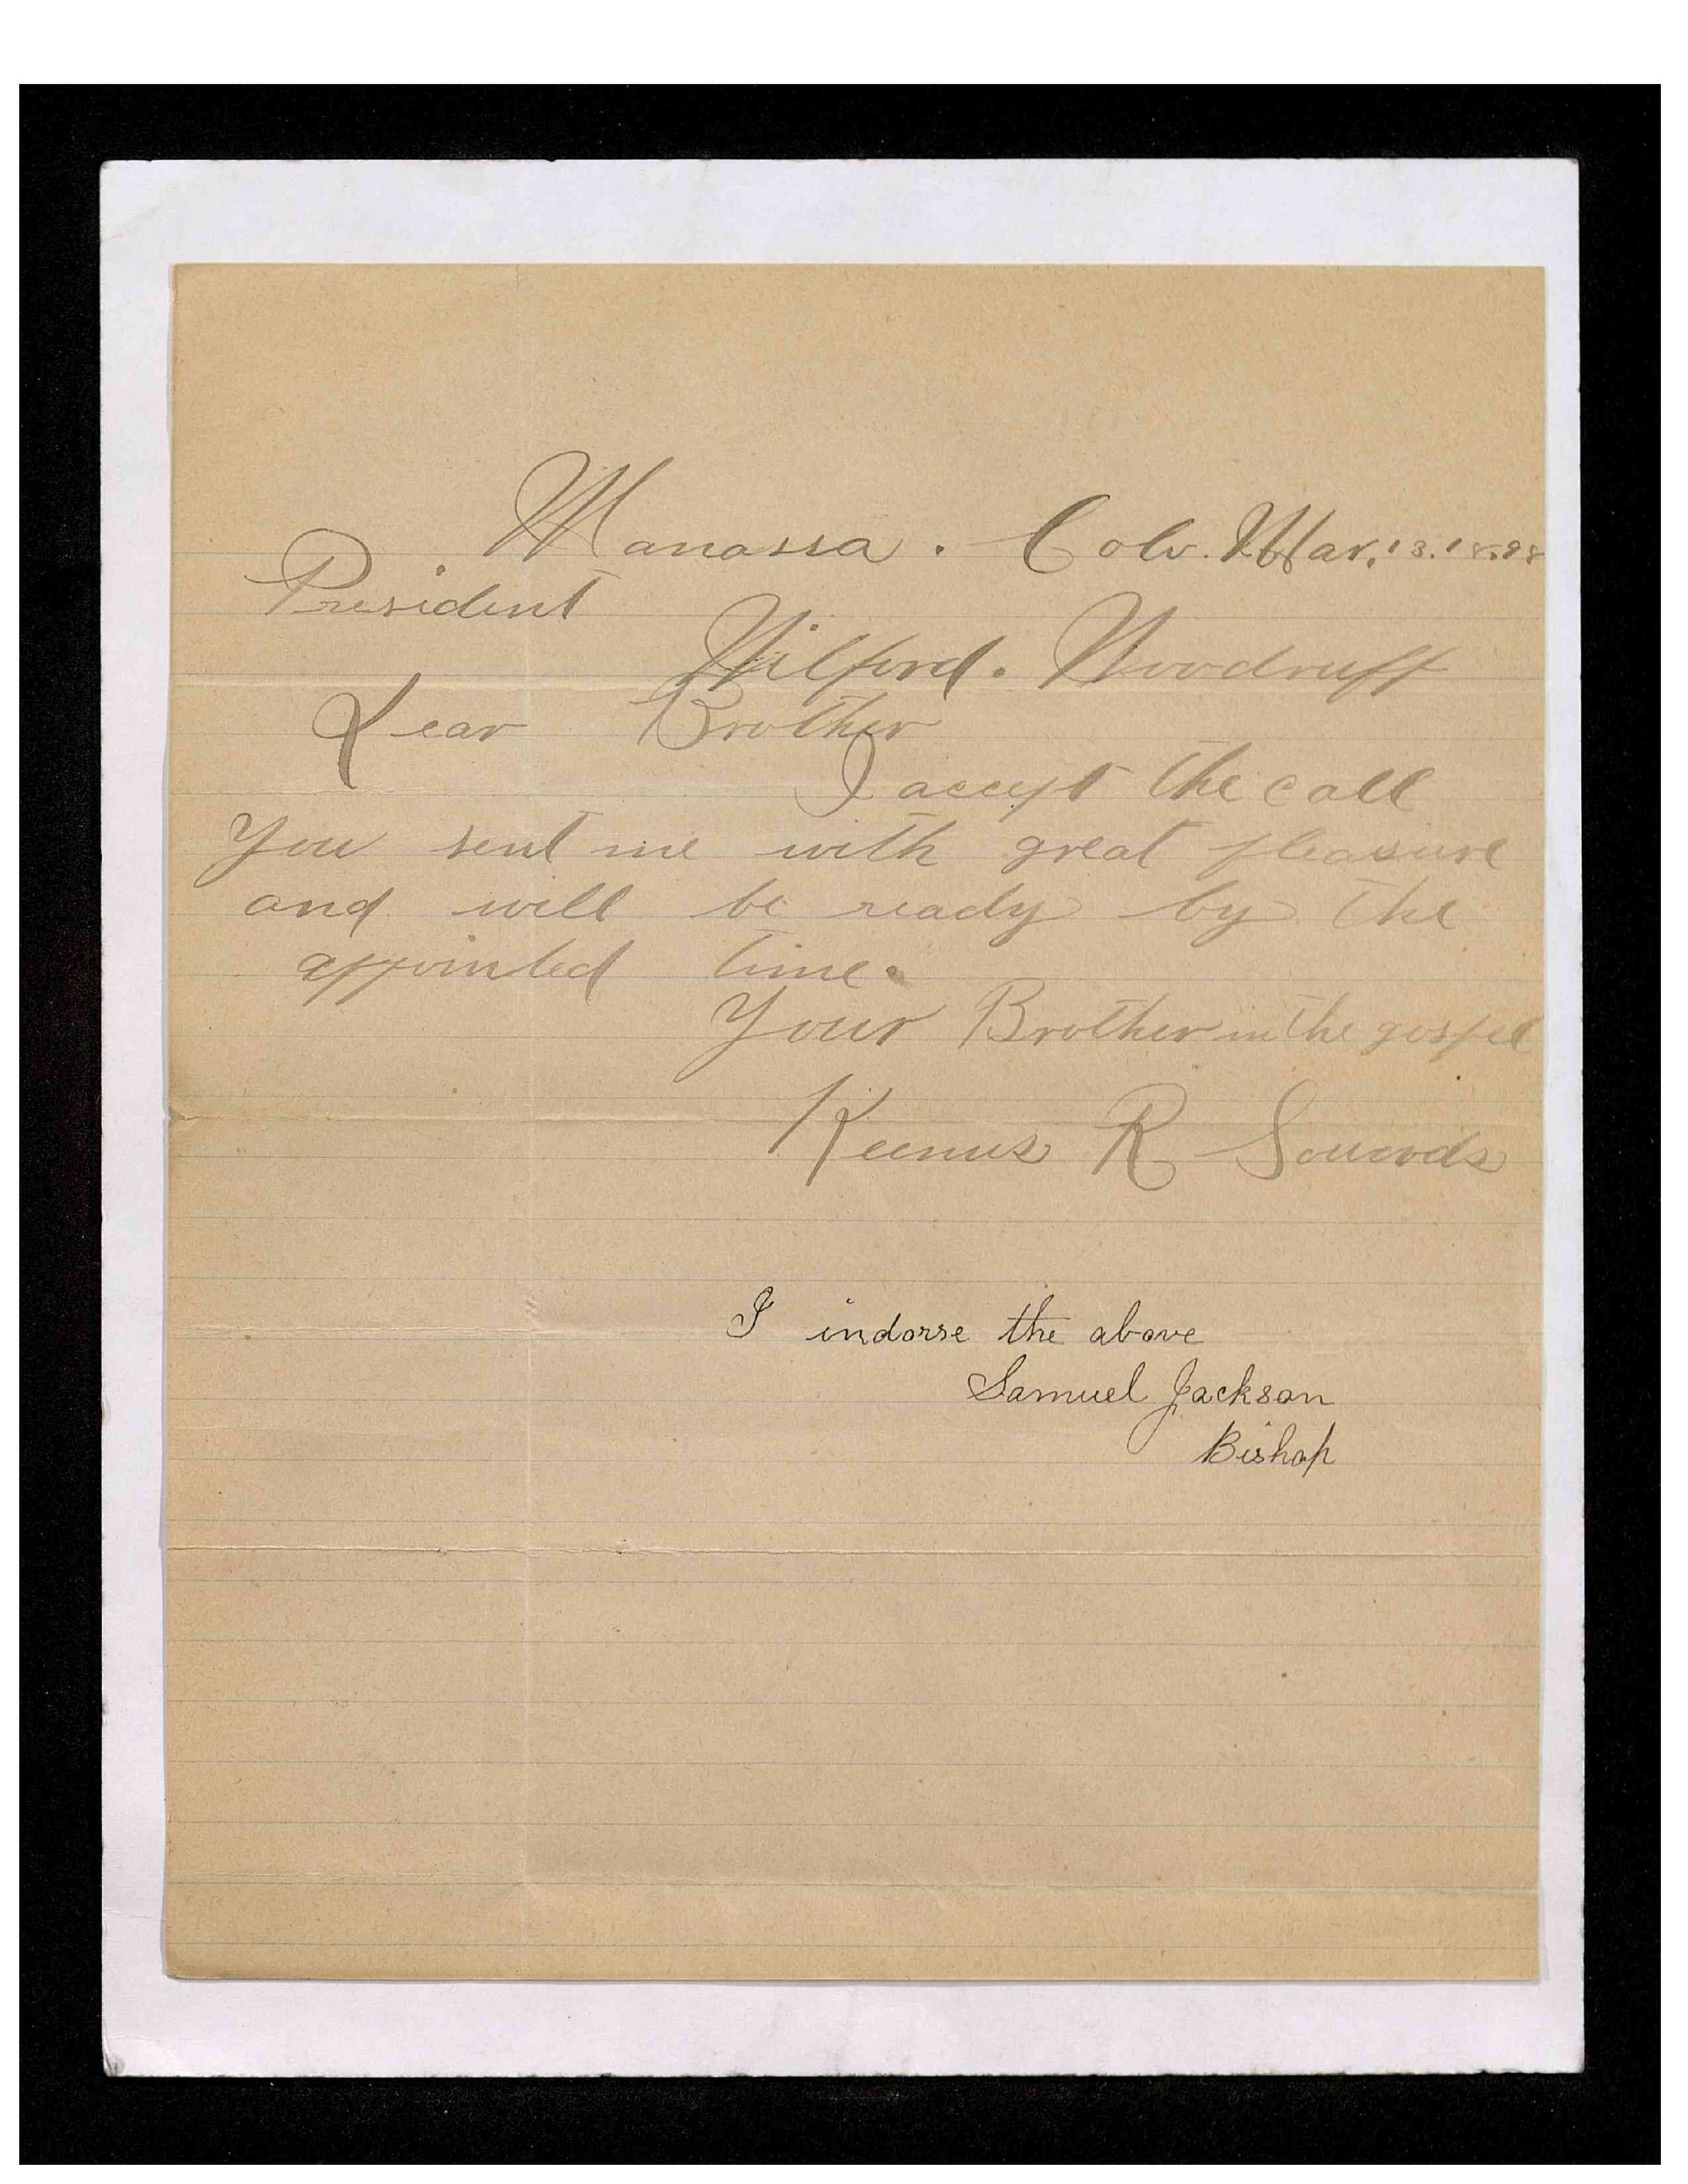 Manassa. Colo. Mar. 13. 1898
President
Wilford. Woodruff
Dear Brother
I accept the call
You sent me with great pleasure
and will be ready by the
appointed time.
Your Brother in the gospel
R
I indorse the above
Samuel Jackson
Bishop